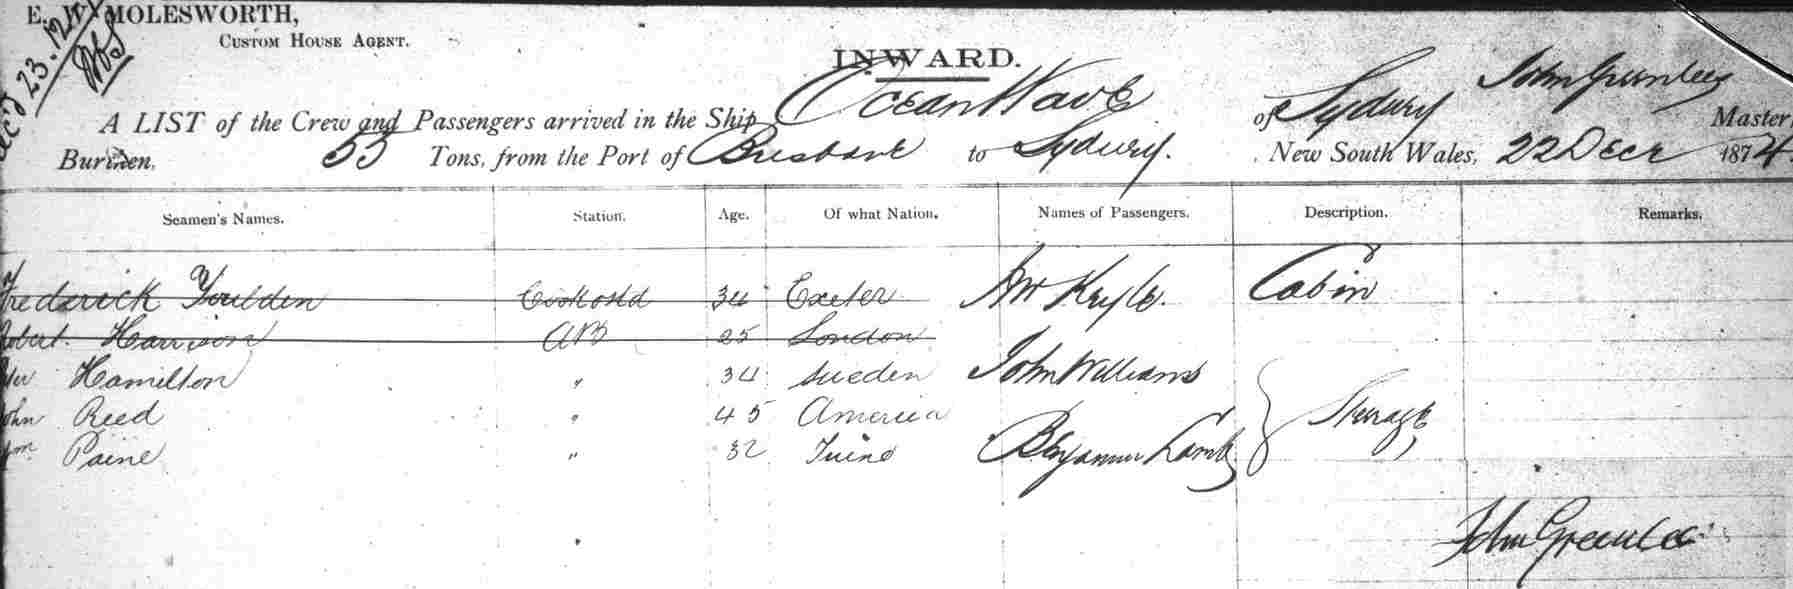 E. W. MOLESWORTH,
CUSTOM HOUSE AGENT.
Rec'd 23.12.74
INWARD.
A LIST of the Crew and Passengers arrived in the Ship Ocean Wave of Sydney John Greenlees Master,
Burthen, 55 Tons, from the Port of Brisbane to Sydney. New South Wales, 22 Decr 1874.
Seamen's Names. Station. Age. Of what Nation. Names of Passengers. Description. Remarks.
Frederick Youlden 34 Exeter Kryle. Cabin
Robert Harrison AB 25 London
Hamilton " 34 Sweden John Williams
John Reed " 45 America Steerage
Wm Paine " 32 Benjamin Lamb
John Greenlees